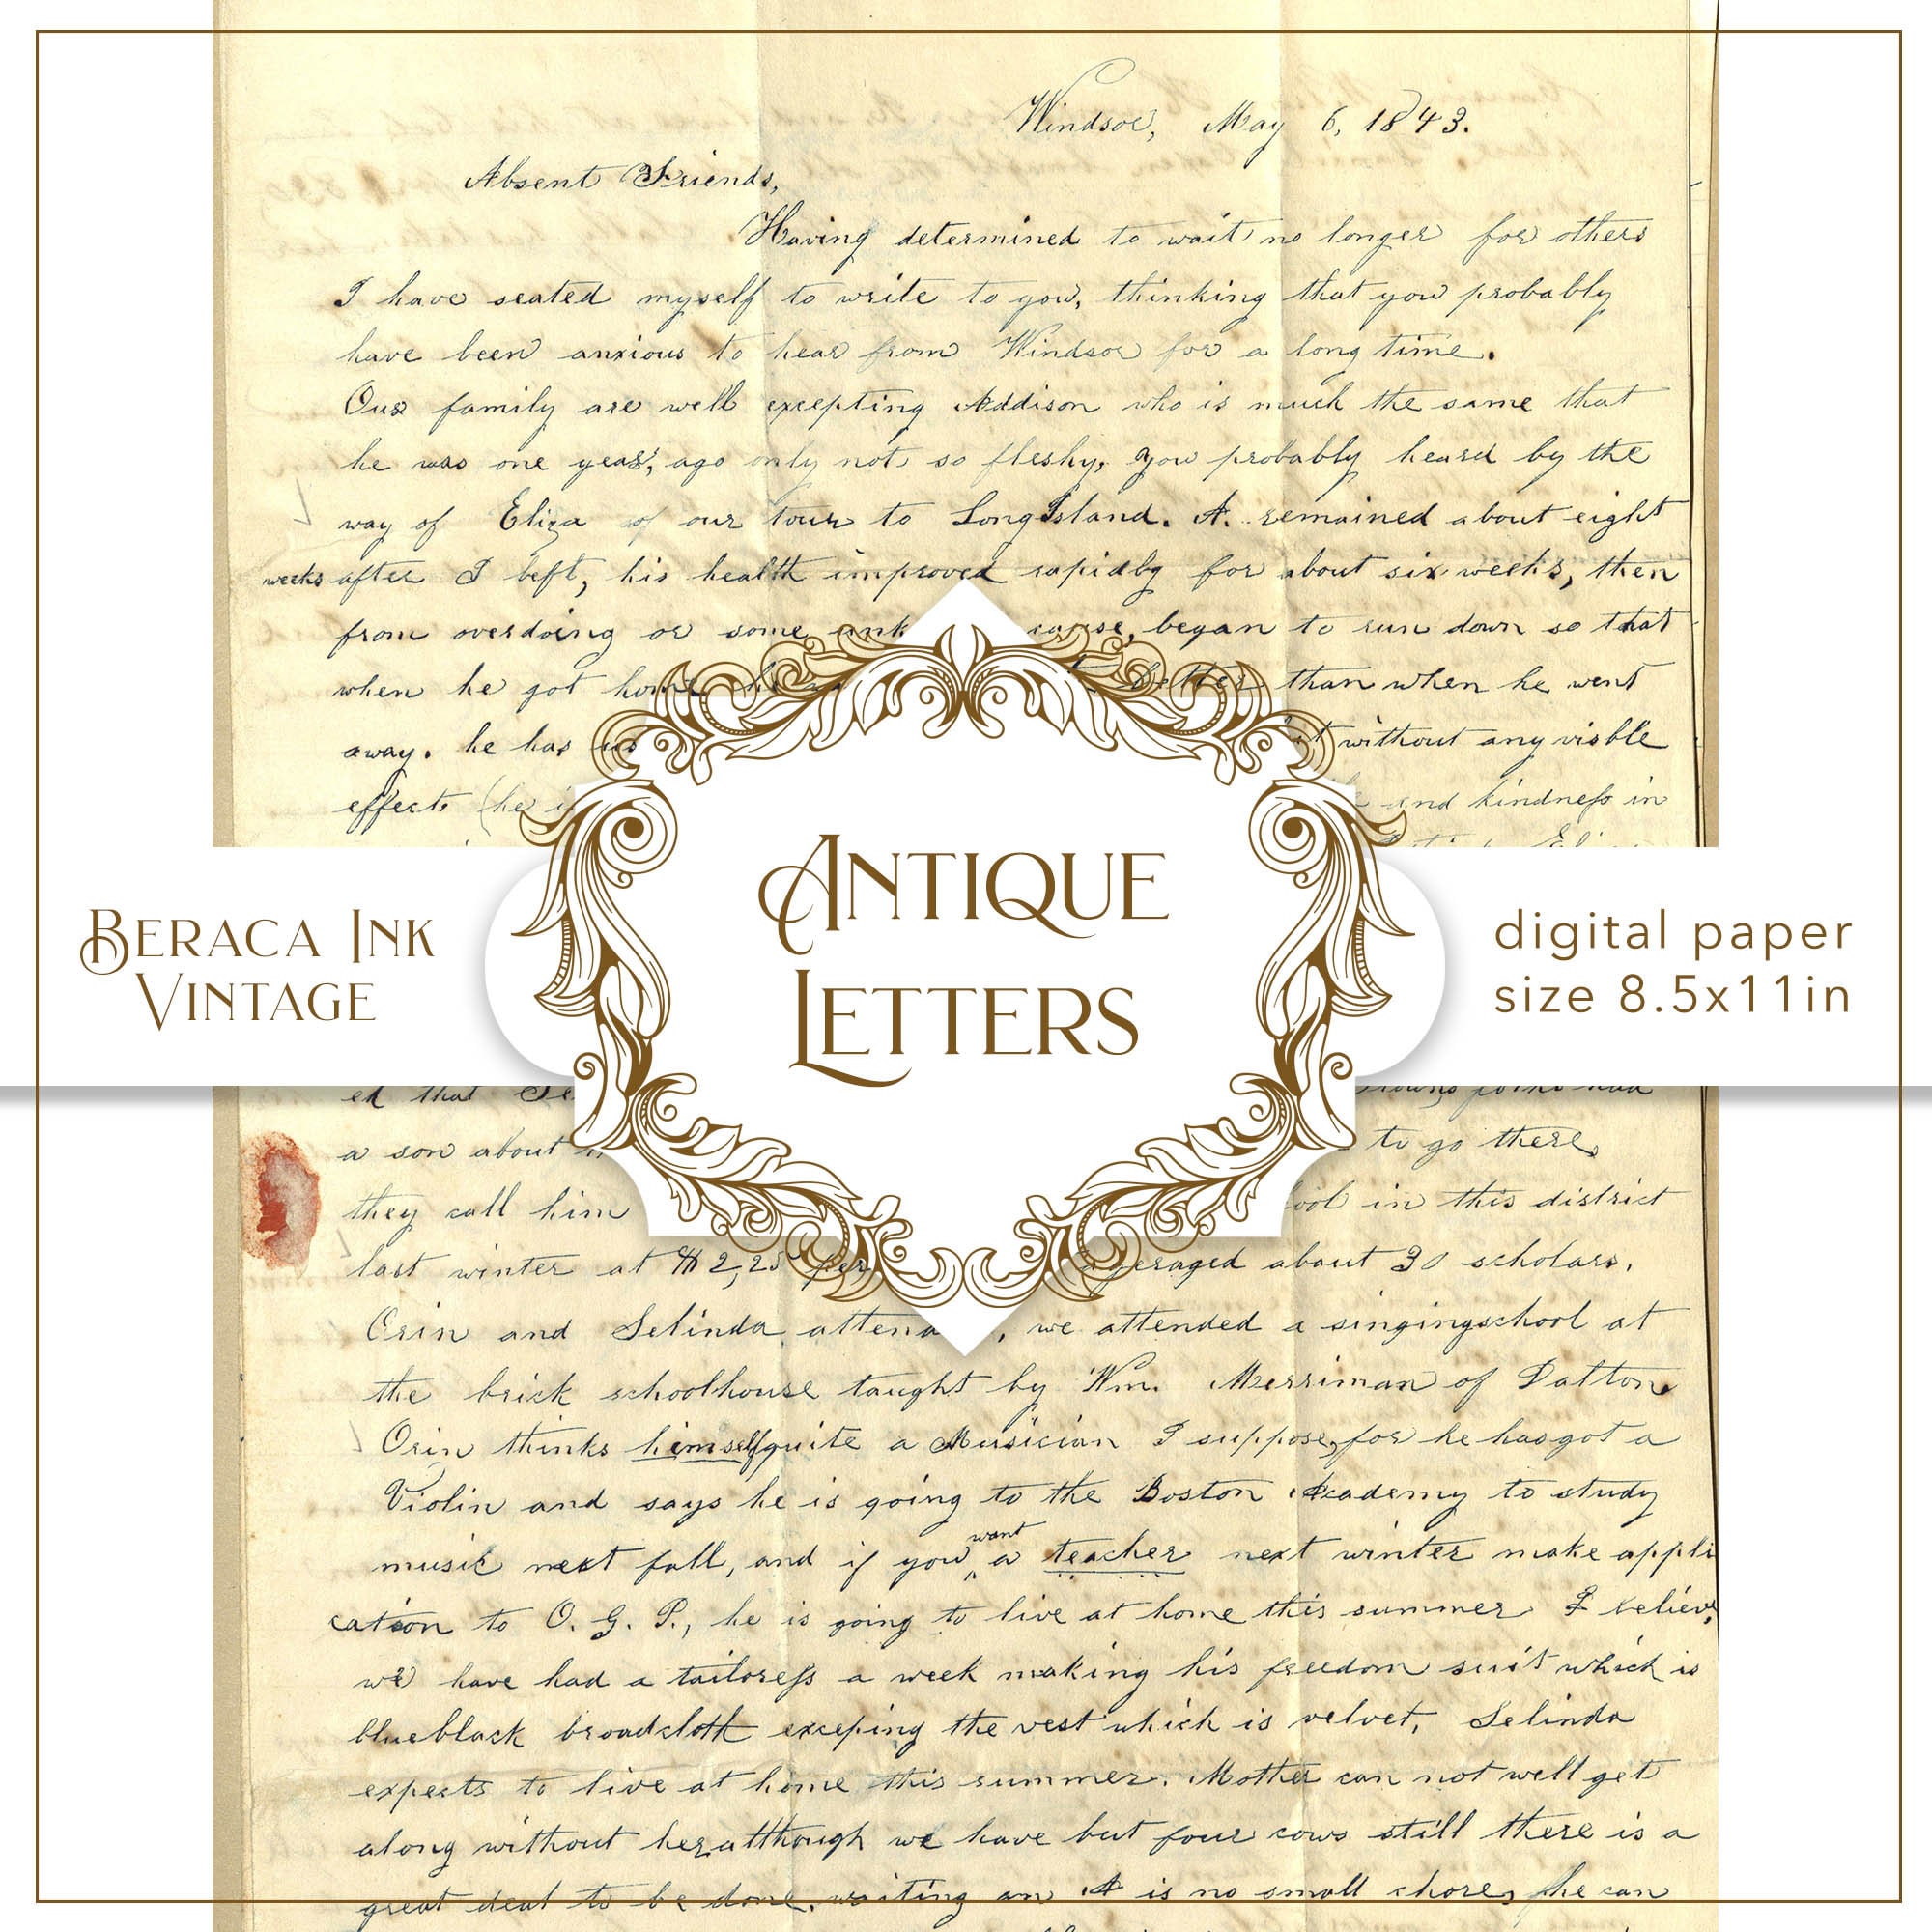 Windsor, May 6, 1843.
Absent Friends,
Having determined to wait no longer for others
I have seated myself to write to you, thinking that you probably
have been anxious to hear from Windsor for a long time.
Our family are well excepting Addison who is much the same that
he was one year, ago only not so fleshy, you probably heard by the
way of Eliza of our tour to Long Island. A. remained about eight
weeks after I left, his health improved rapidly for about six weeks, then
from overdoing or some cause, began to run down so that
when he got home he better than when he went
away. he has without any visble
effect, (he and kindness in
ANTIQUE
LETTERS
BERACA INK
VINTAGE
digital paper
size 8.5x11in
ed that had
a son about to go there,
they call him in this district
last winter at $2,25 per averaged about 30 scholars,
Orin and Selinda , we attended a singingschool at
the brick schoolhouse taught by Wm. Merriman of Dalton,
Orin thinks himself quite a Musician I suppose, for he has got a
Violin and says he is going to the Boston Academy to study
music next fall, and if you want a teacher next winter make appli
cation to O. G. P., he is going to live at home this summer I believ,
we have had a tailoress a week making his freedom suit which is
blueblack broadcloth exceping the vest which is velvet, Selinda
expects to live at home this summer. Mother can not well get
along without her, although we have but four cows still there is a
great deal to be done, waiting on A is no small chore, he can